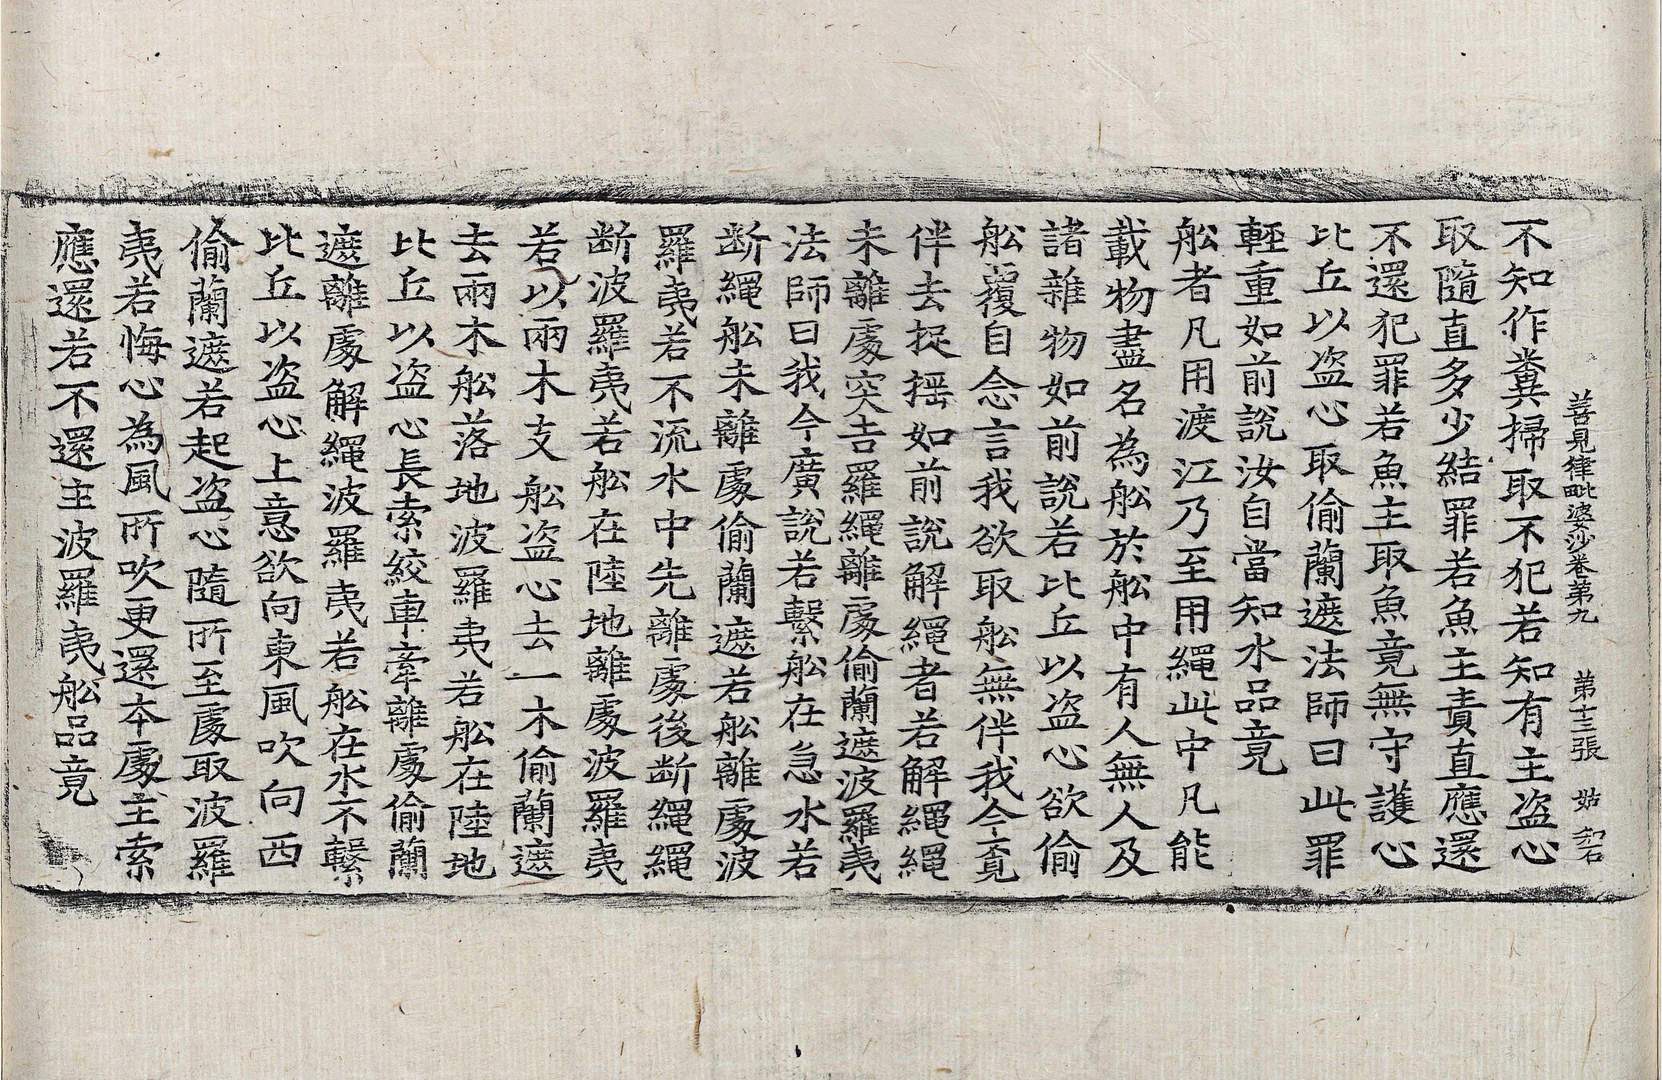 善見律毗婆沙卷第九　第十三張　姑
不知作糞掃取不犯若知有主盗心
取隨直多少結罪若魚主責直應還
不還犯罪若魚主取魚竟無守護心
比丘以盗心取偷蘭遮法師曰此罪
輕重如前說汝自當知水品竟
舩者凡用渡江乃至用繩此中凡能
載物盡名為舩於舩中有人無人及
諸雜物如前說若比丘以盗心欲偷
舩覆自念言我欲取舩無伴我今覔
伴去捉揺如前說解繩者若解繩繩
未離處突吉羅繩離處偷蘭遮波羅夷
法師曰我今廣說若繫舩在急水若
断繩舩未離處偷蘭遮若舩離處波
羅夷若不流水中先離處後断繩繩
断波羅夷若舩在陸地離處波羅夷
若以兩木支舩盗心去一木偷蘭遮
去兩木舩落地波羅夷若舩在陸地
比丘以盗心長索絞車牽離處偷蘭
遮離處解繩波羅夷若舩在水不繫
比丘以盗心上意欲向東風吹向西
偷蘭遮若起盗心隨所至處取波羅
夷若悔心為風所吹更還本處主索
應還若不還主波羅夷舩品竟